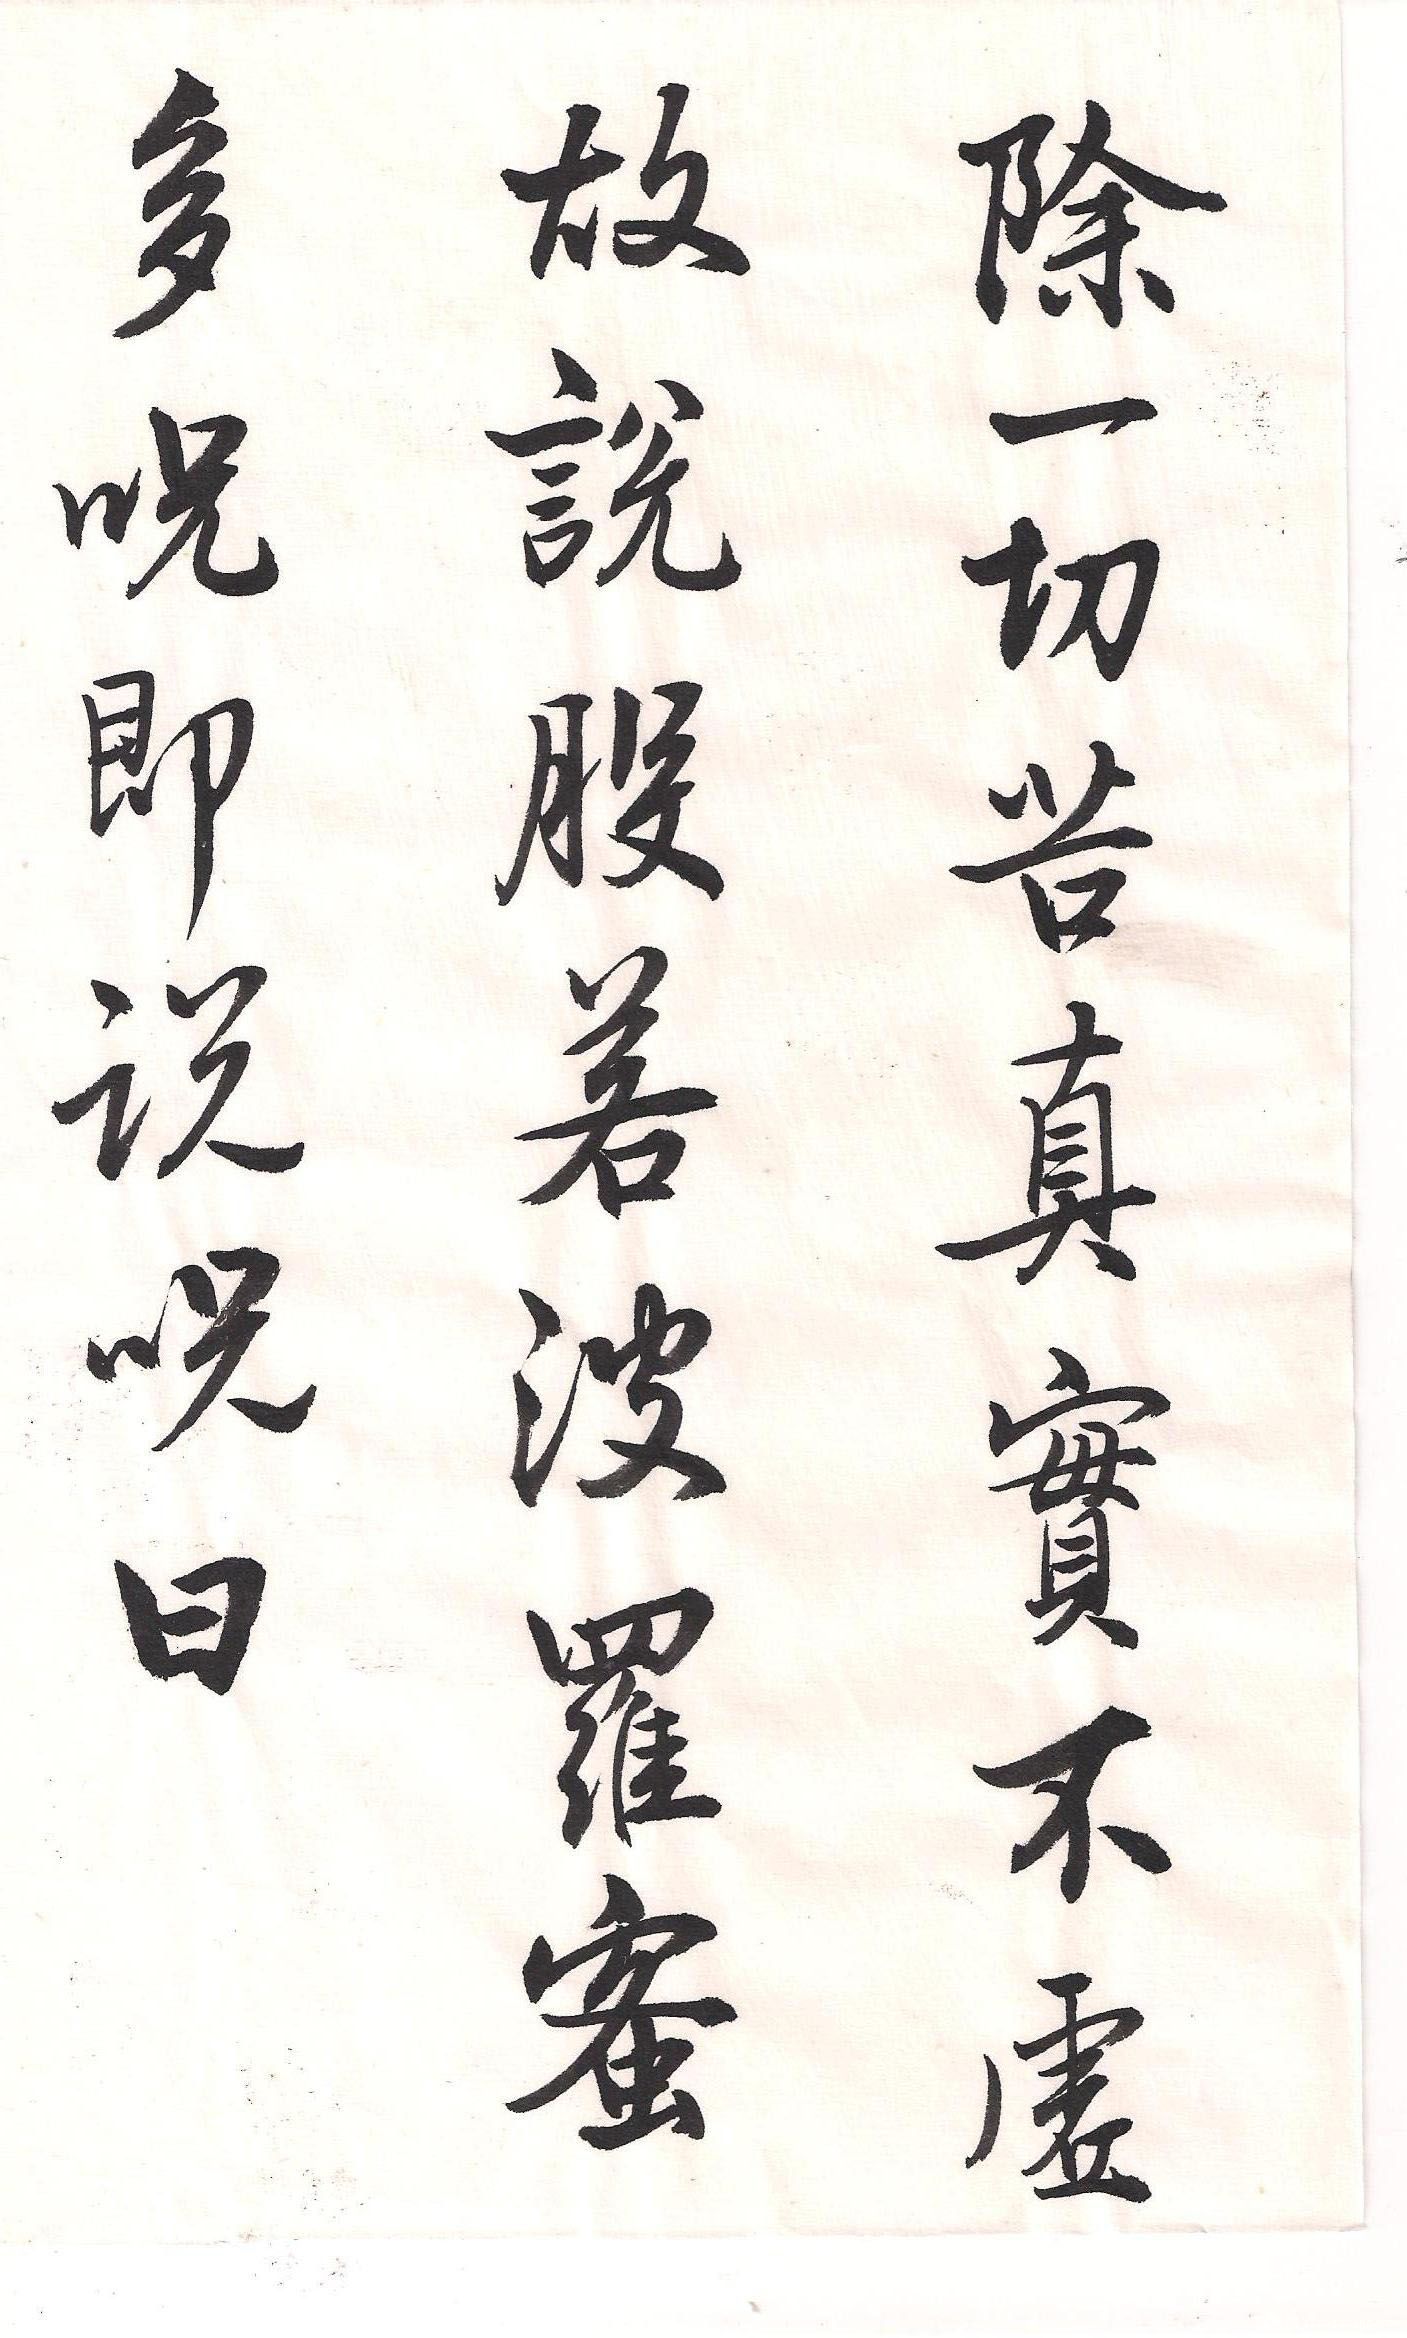 除一切苦真實不虛
故說般若波羅蜜
多呪即說呪曰